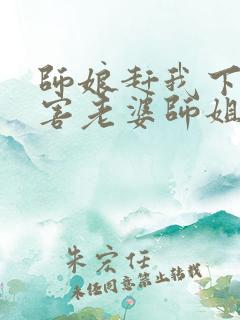 師娘赶我下
害老婆師姐
朱宏任
未经同意禁止转载